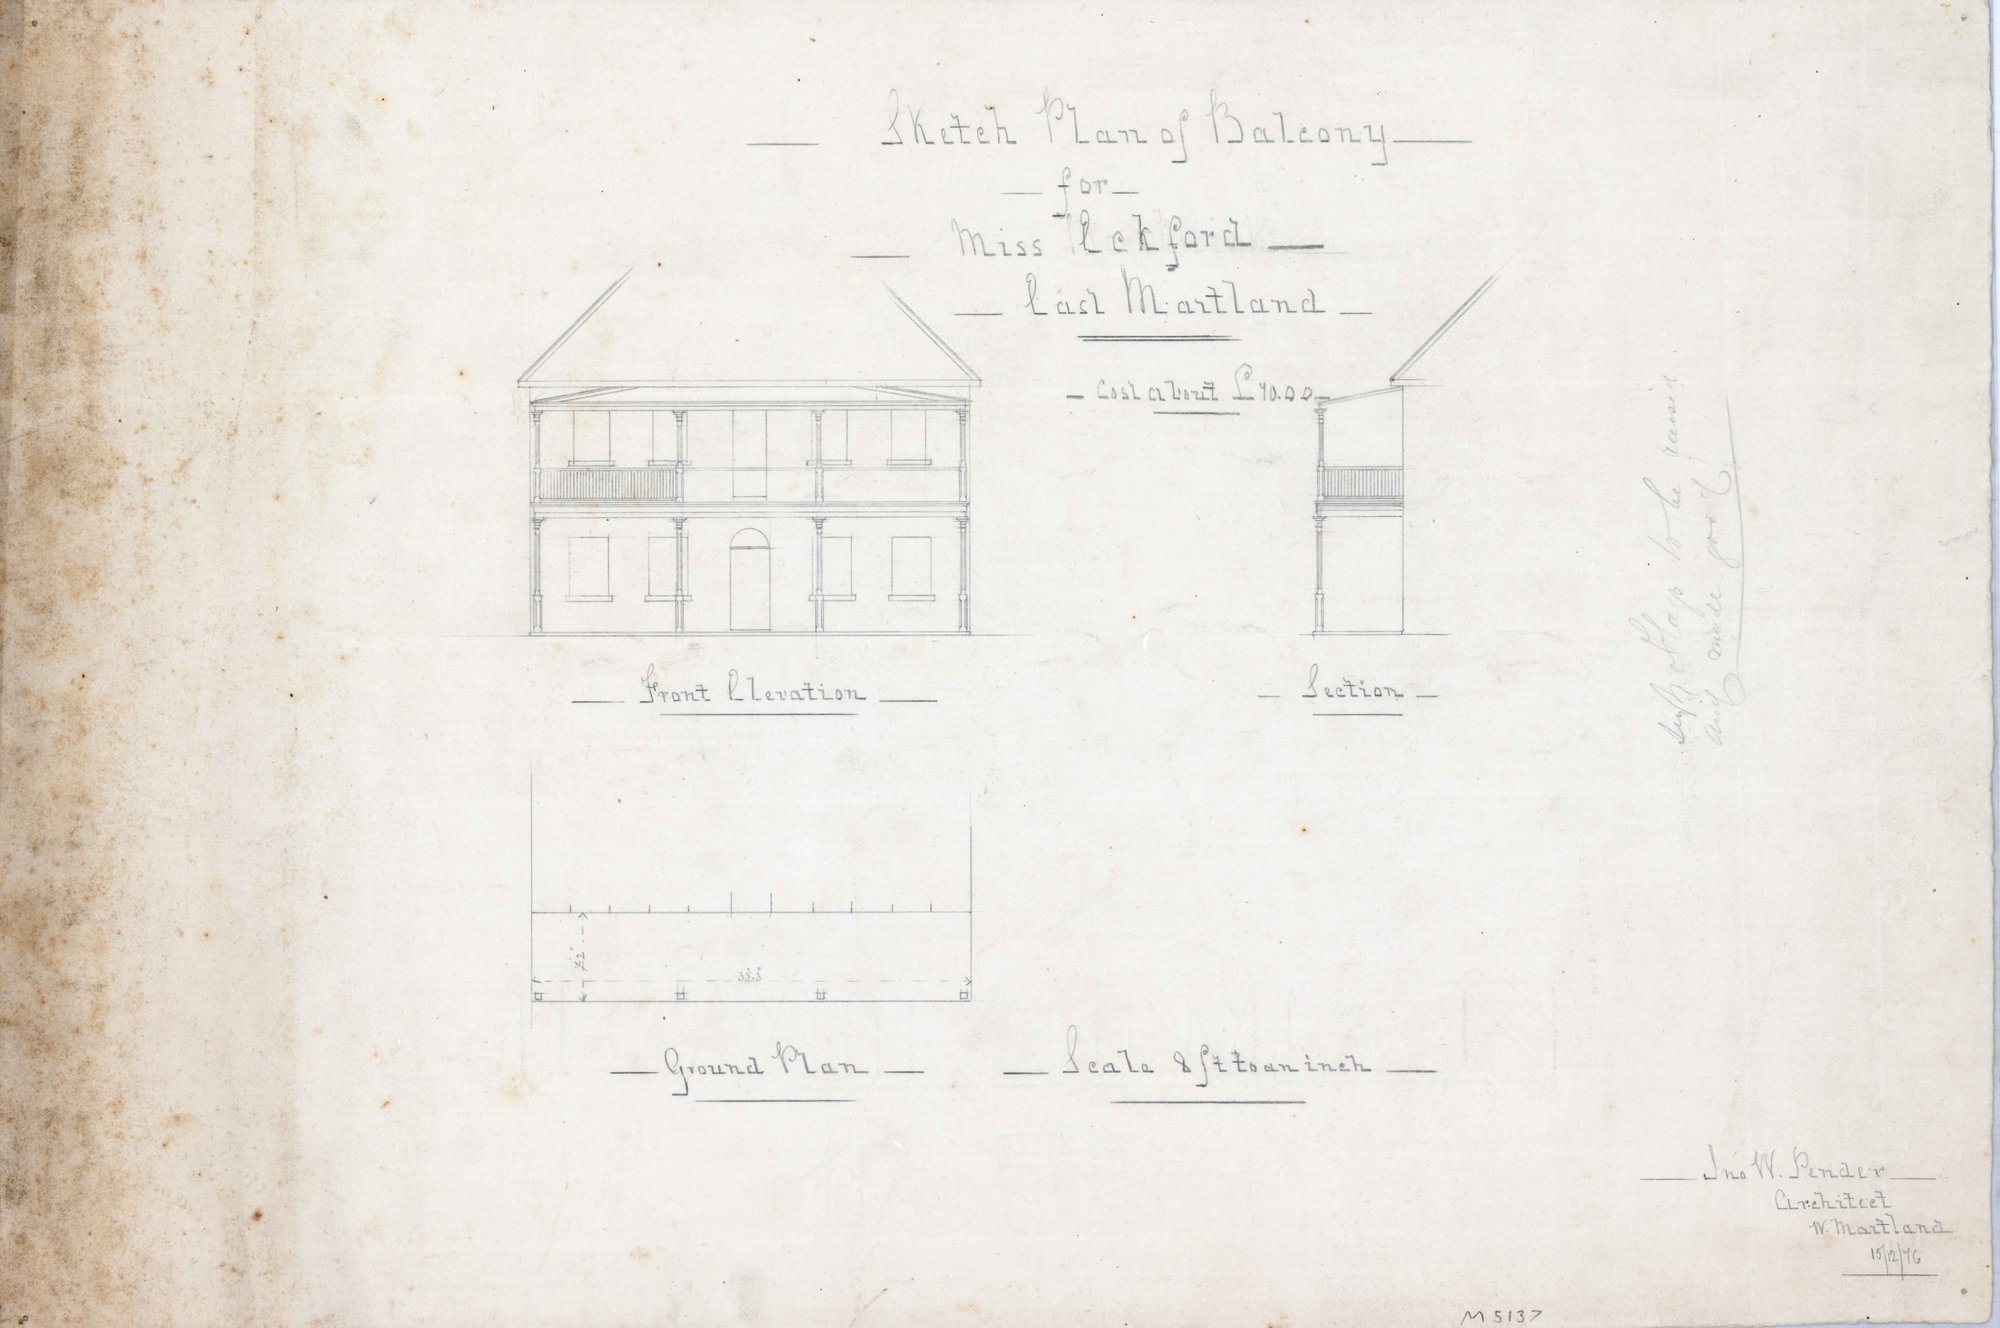 Sketch Plan of Balcony
for
Miss Eckford
East Maitland
Cost about £70.0.0
Front Elevation
Section
to be raised
and made good
Ground Plan
Scale 8 ft to an inch
Jno W. Pender
Architect
W. Maitland
15/12/76
M 5137